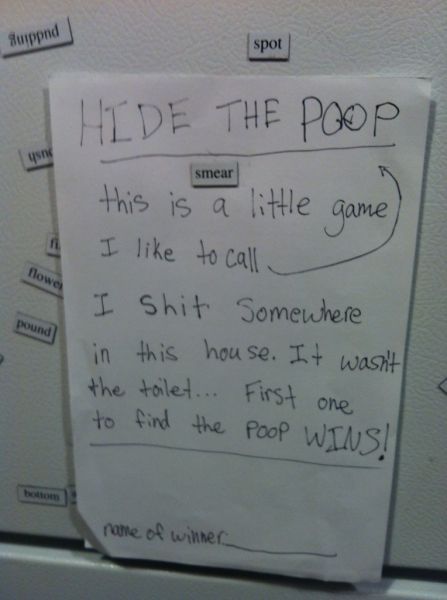 pudding
spot
HIDE THE POOP
smear
this is a little game
I like to call
flower
pound
I shit Somewhere
in this house. It wasn't
the toilet... First one
to find the POOP WINS!
bottom
name of winner